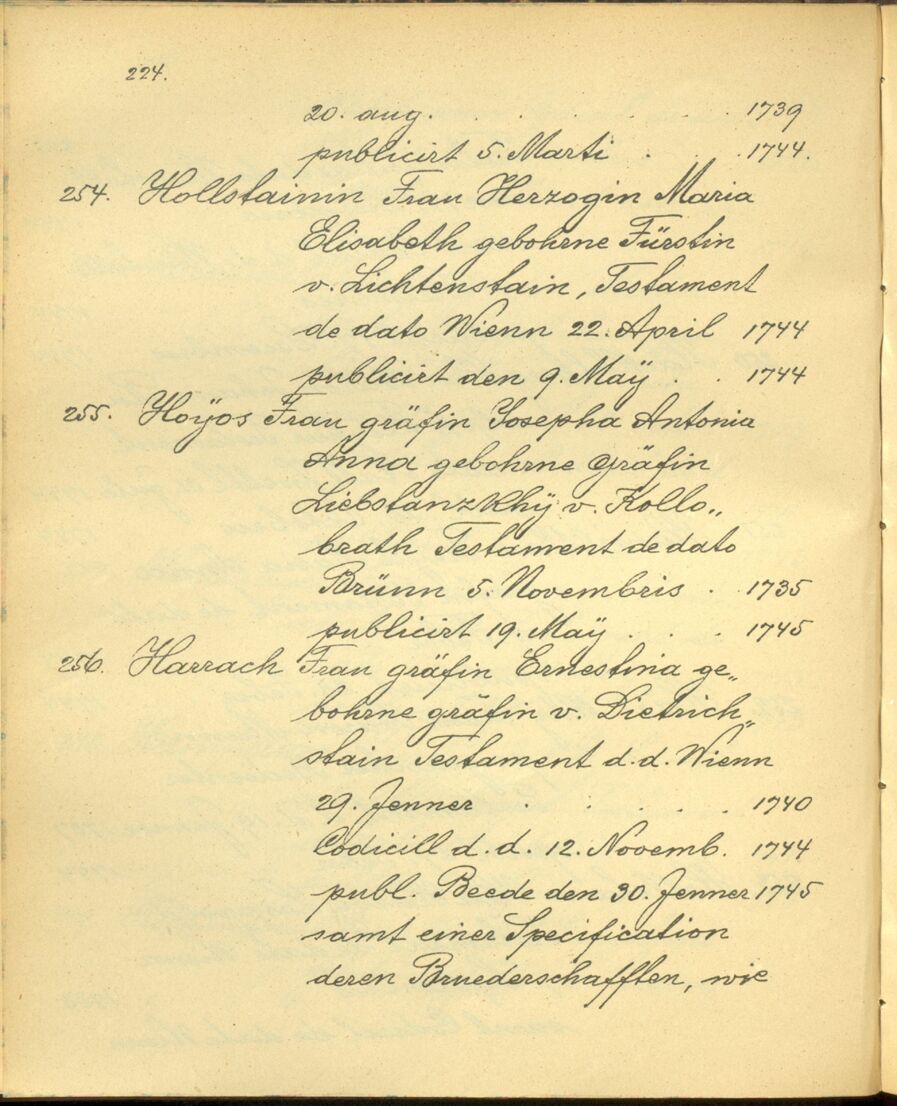 224.
20. aug. . . . . . 1739
publicirt 5. Marti . . 1744.
254. Hollstainin Frau Herzogin Maria
Elisabeth gebohrne Fürstin
v. Lichtenstain, Testament
de dato Wienn 22. April 1744
publicirt den 9. Maÿ . . 1744
255. Hoÿos Frau gräfin Josepha Antonia
Anna gebohrne gräfin
Liebstanzkhÿ v. Kollo„
brath Testament de dato
Brünn 5. Novembris . 1735
publicirt 19. Maÿ . . . 1745
256. Harrach Frau gräfin Ernestina ge„
bohrne gräfin v. Dietrich„
stain Testament d. d. Wienn
29. Jenner . . . . 1740
Codicill d. d. 12. Novemb. 1744
publ. Beede den 30. Jenner 1745
samt einer Specification
deren Bruederschafften, wie